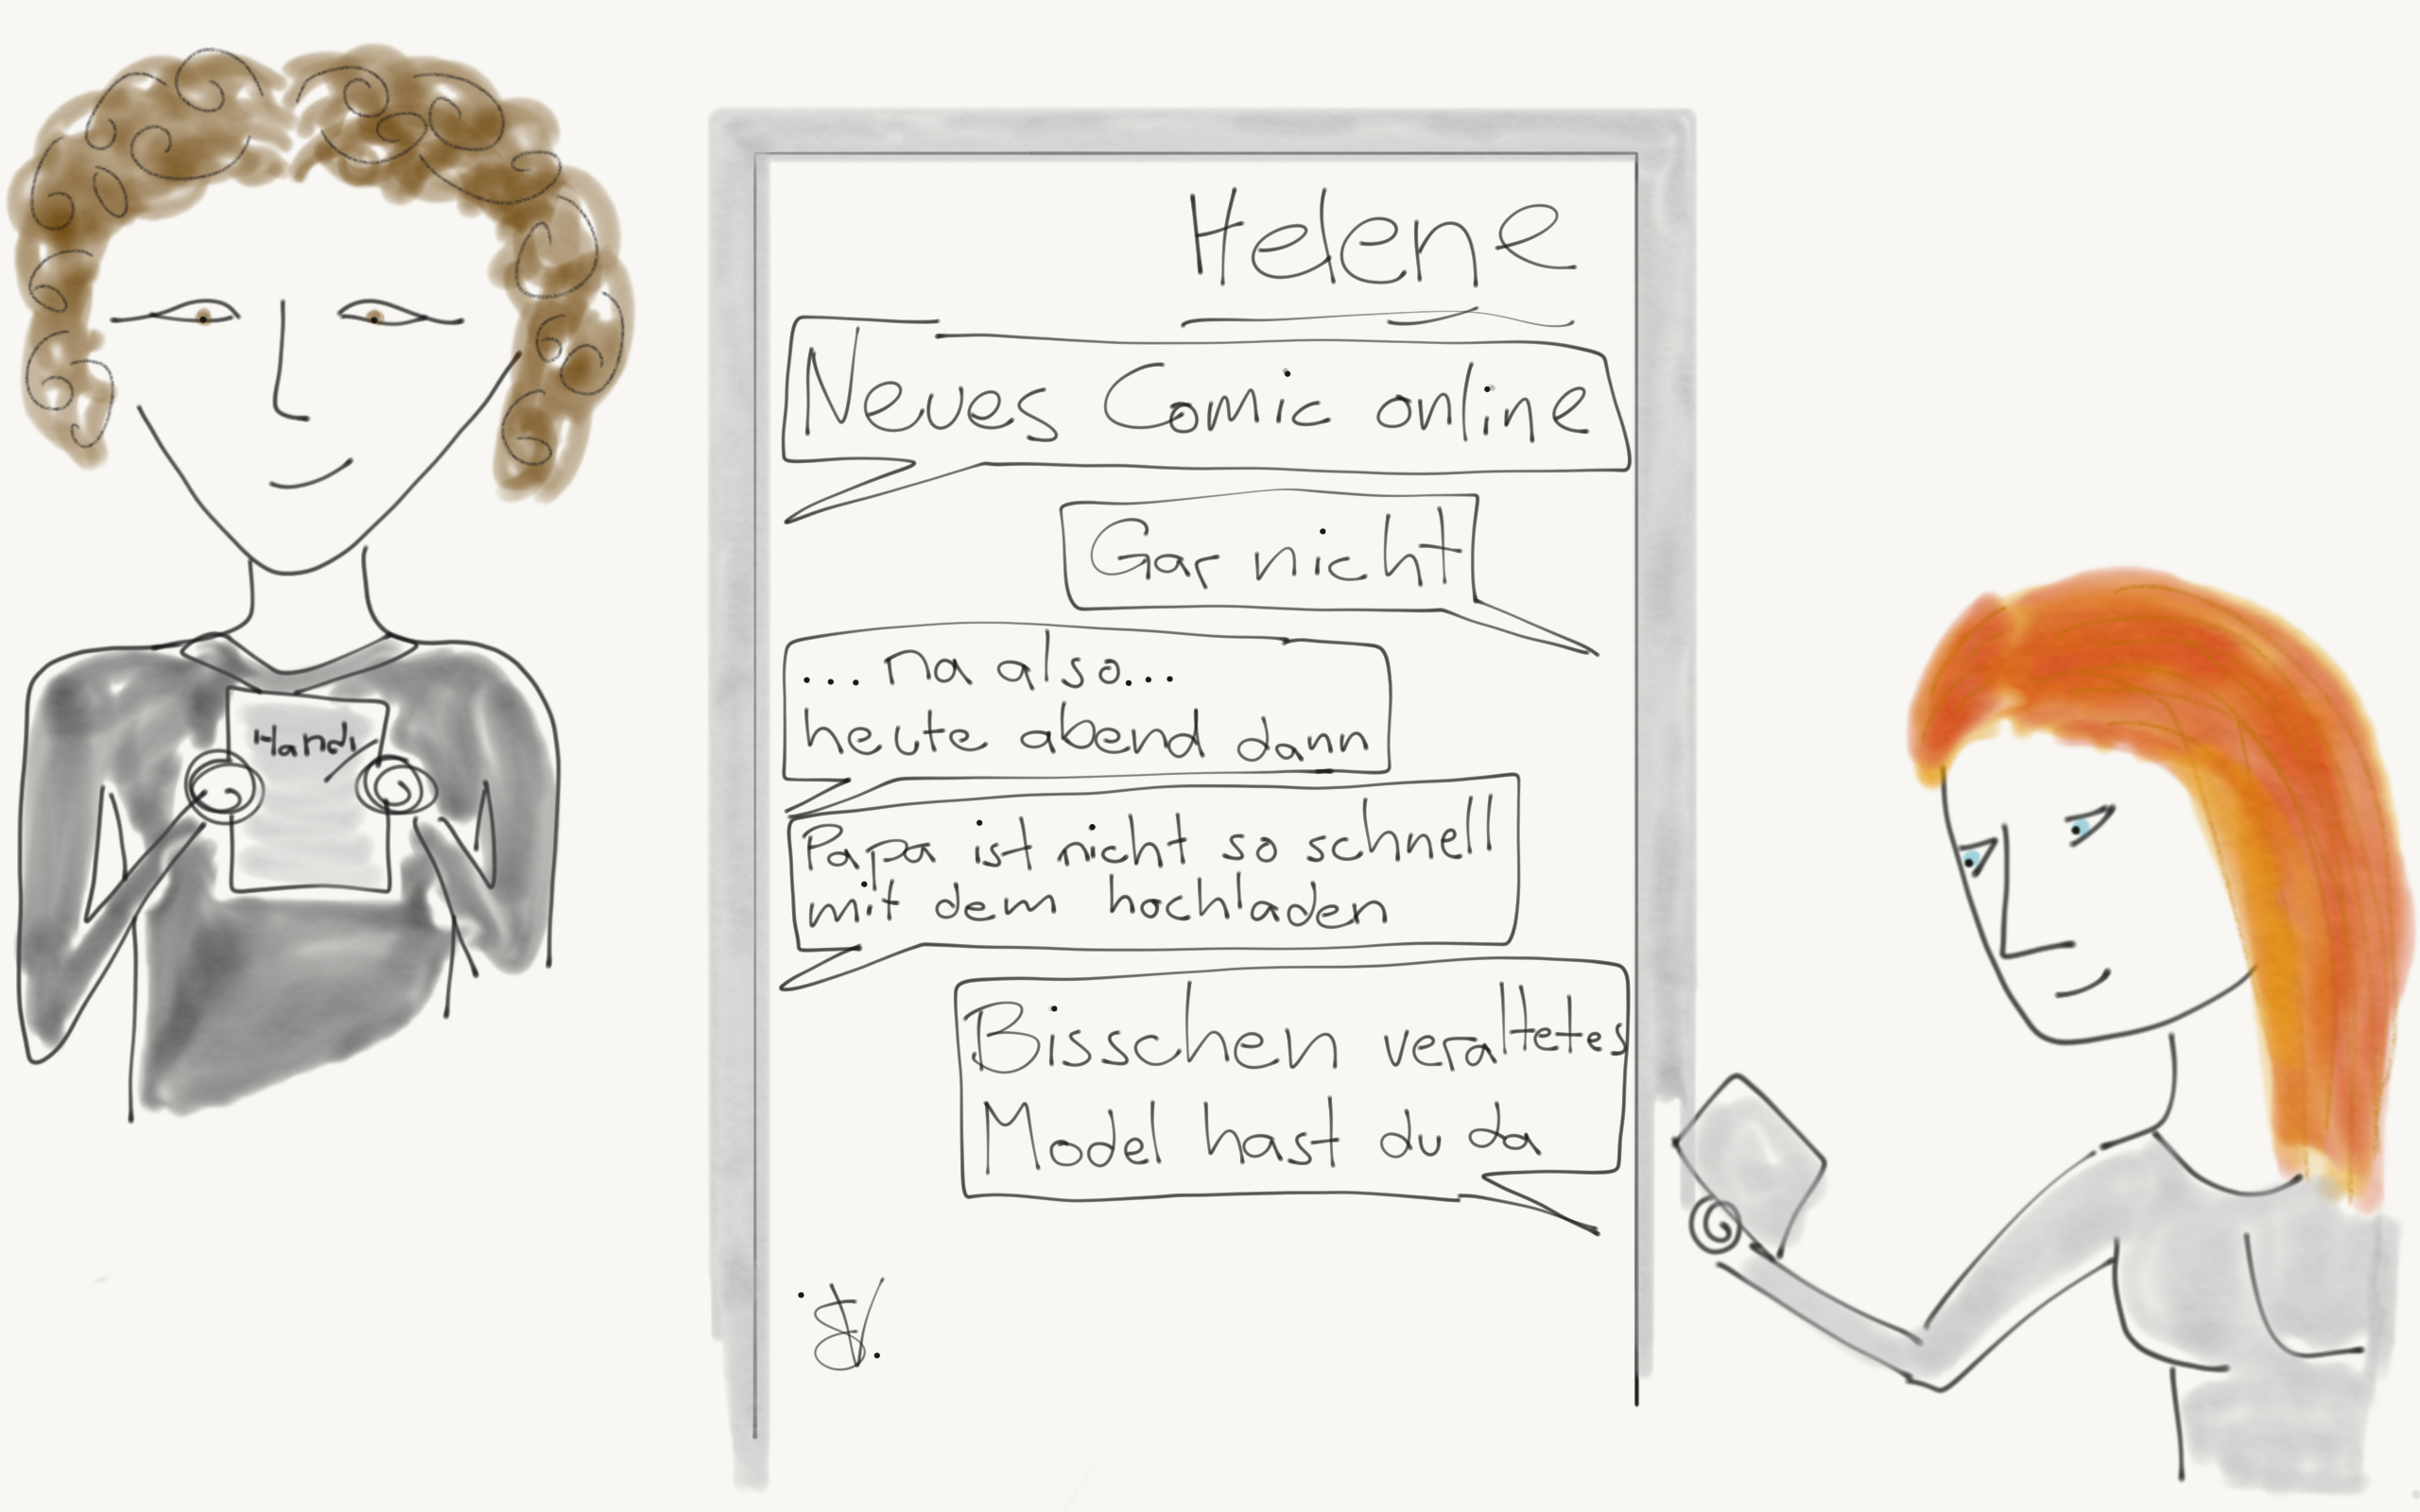 Helene
Neues Comic online
Gar nicht
... na also...
heute abend dann
Papa ist nicht so schnell
mit dem hochladen
Bisschen veraltetes
Model hast du da
Handy